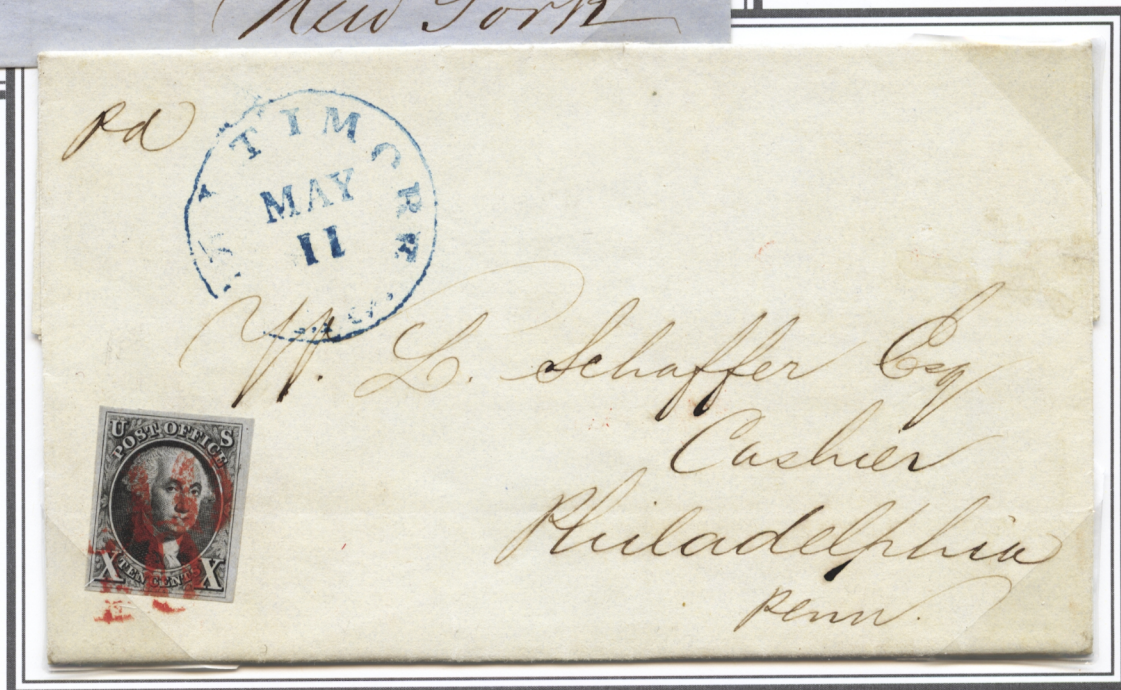 New York
pd
TIMORE
MAY
11
W. L. Schaffer Esq
Cashier
Philadelphia
Penn.
U S
POST OFFICE
X X
TEN CENTS